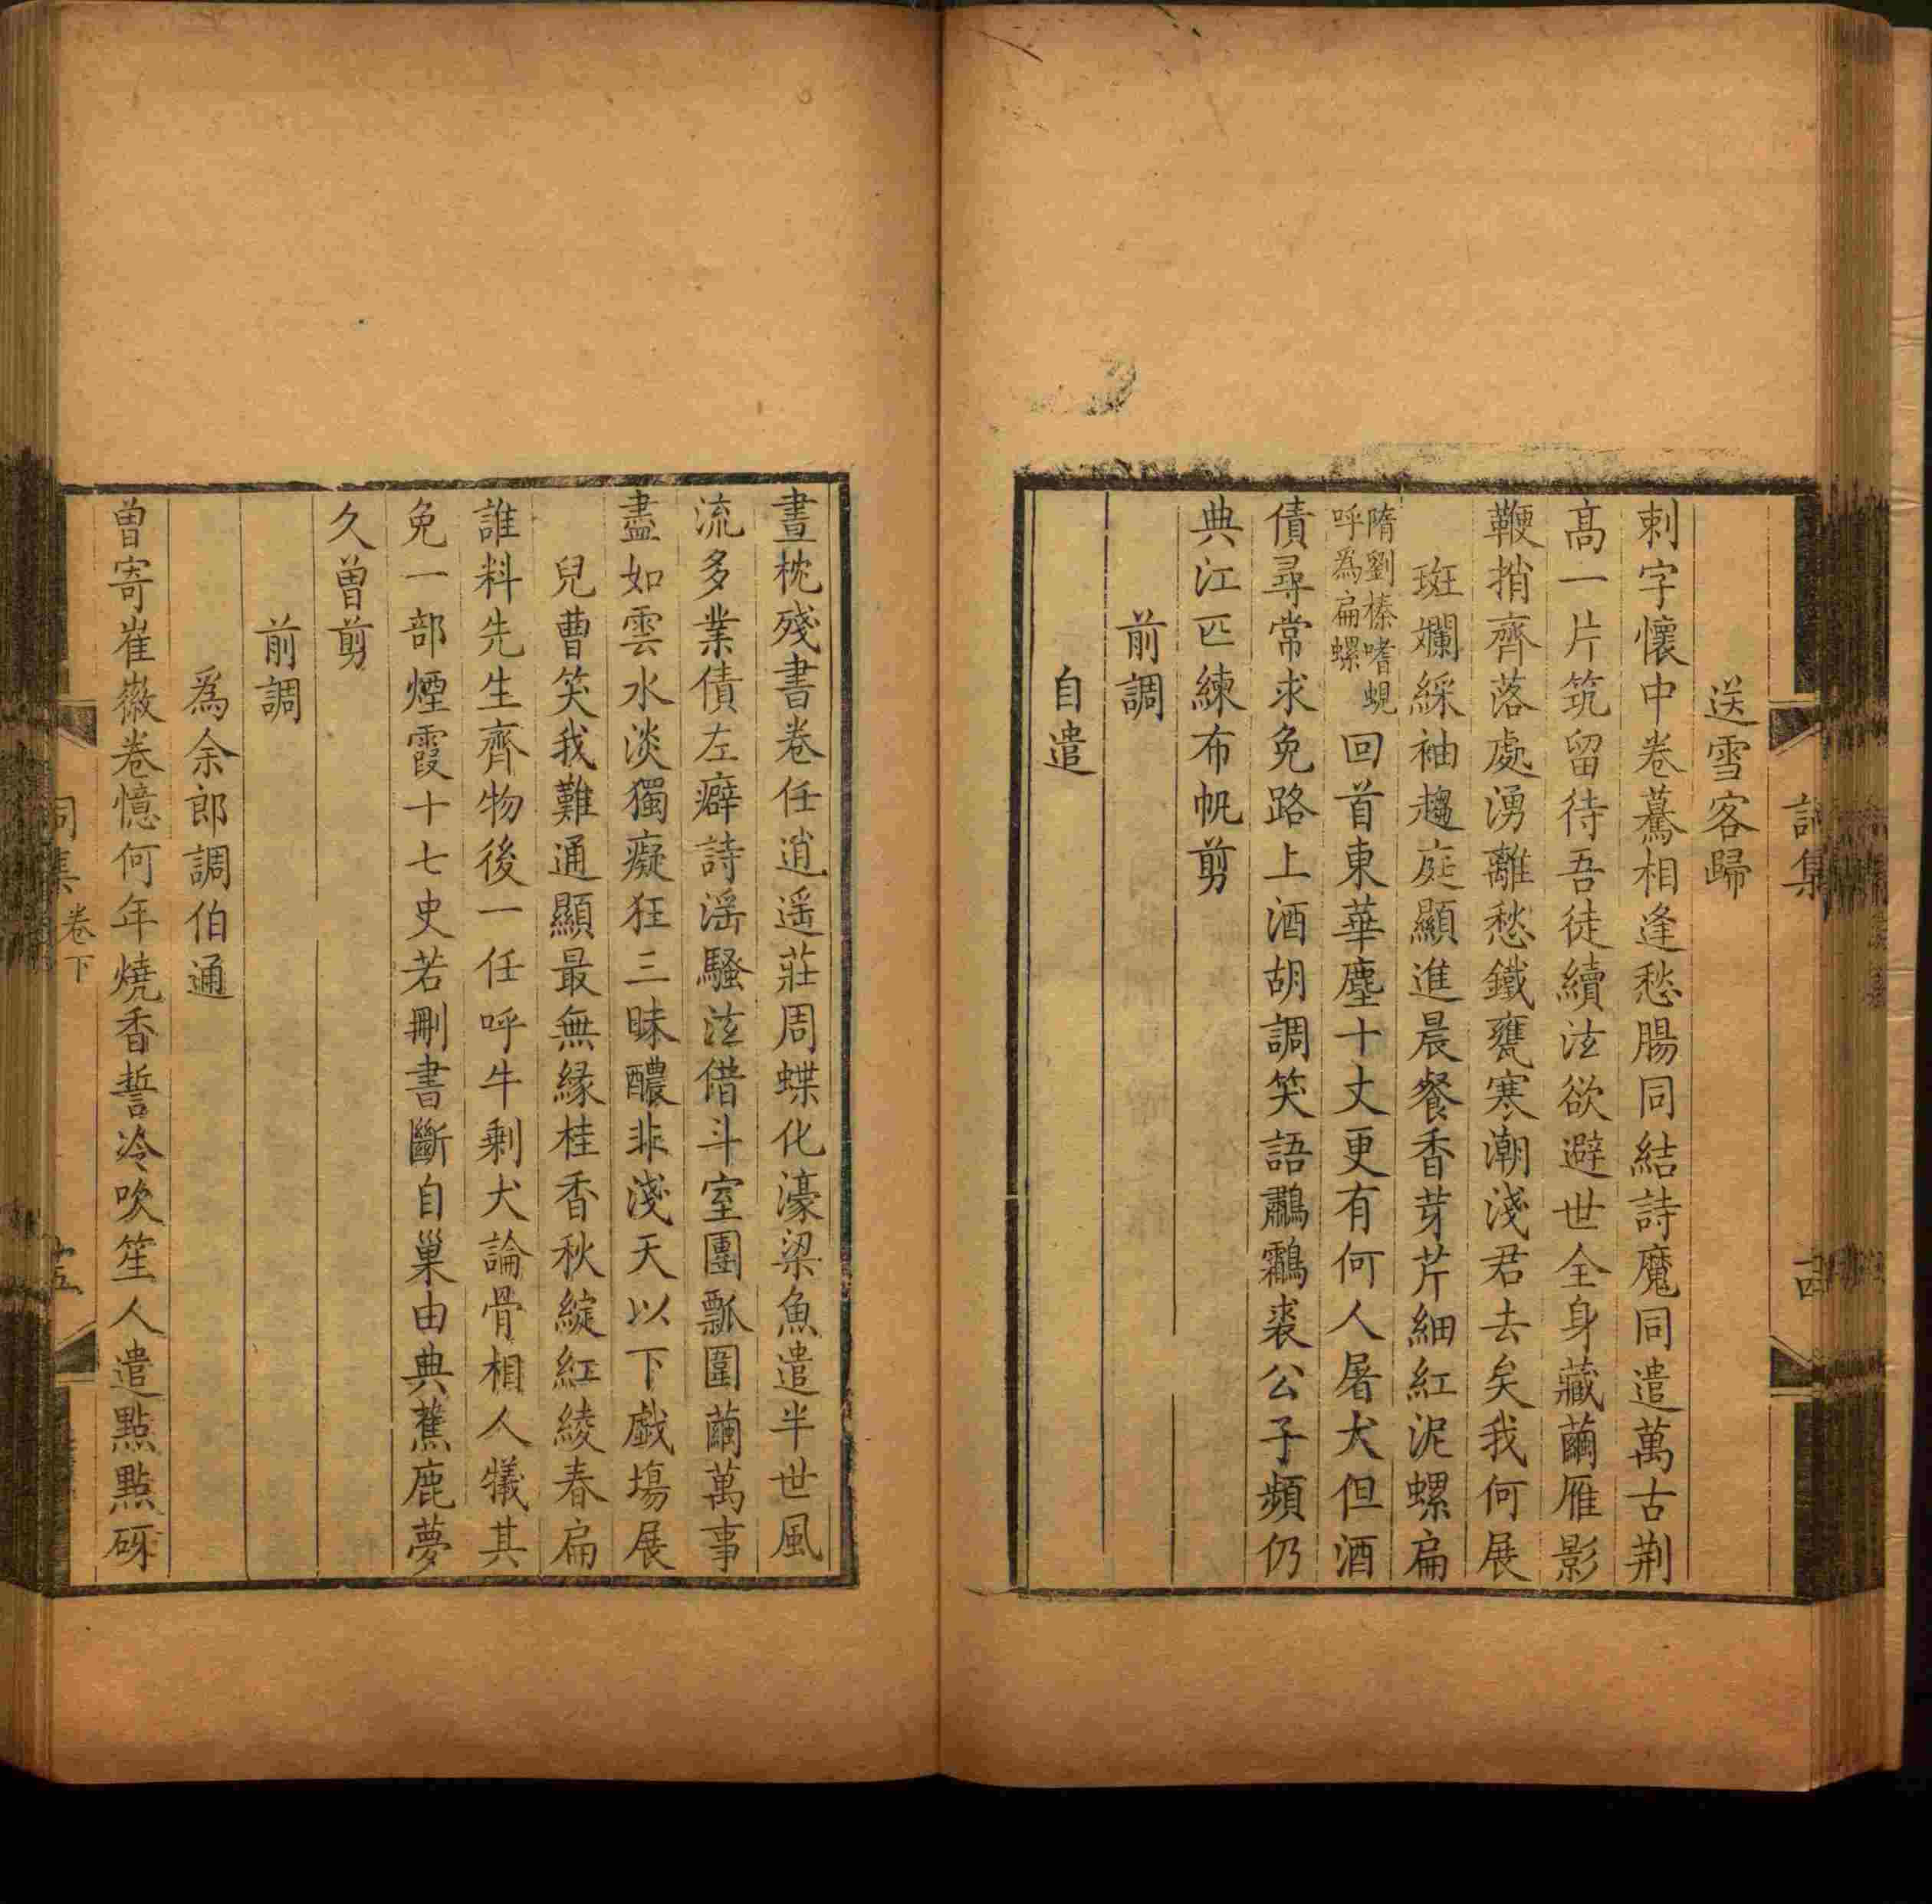 送雪客歸
刺字懷中卷驀相逢愁腸同結詩魔同遣萬古荆
高一片筑留待吾徒續泫欲避世全身藏繭雁影
鞭捎齊落處湧離愁鐵甕寒潮淺君去矣我何展
斑斕綵袖趨庭顯進晨餐香芽芹細紅泥螺扁
隋劉榛嗜蜆
呼爲扁螺
回首東華塵十丈更有何人屠犬但酒
債尋常求免路上酒胡調笑語鷫鸘裘公子頻仍
典江匹練布帆剪
前調
自遣
晝枕殘書卷任逍遥莊周蝶化濠梁魚遣半世風
流多業債左癖詩滛騷泫借斗室團瓢圍繭萬事
盡如雲水淡獨癡狂三昧醲非淺天以下戯塲展
兒曹笑我難通顯最無緣桂香秋綻紅綾春扁
誰料先生齊物後一任呼牛剩犬論骨相人犧其
免一部煙霞十七史若刪書斷自巢由典蕉鹿夢
久曾剪
前調
爲余郎調伯通
曾寄崔徽卷憶何年燒香誓冷吹笙人遣點點砑
卷下